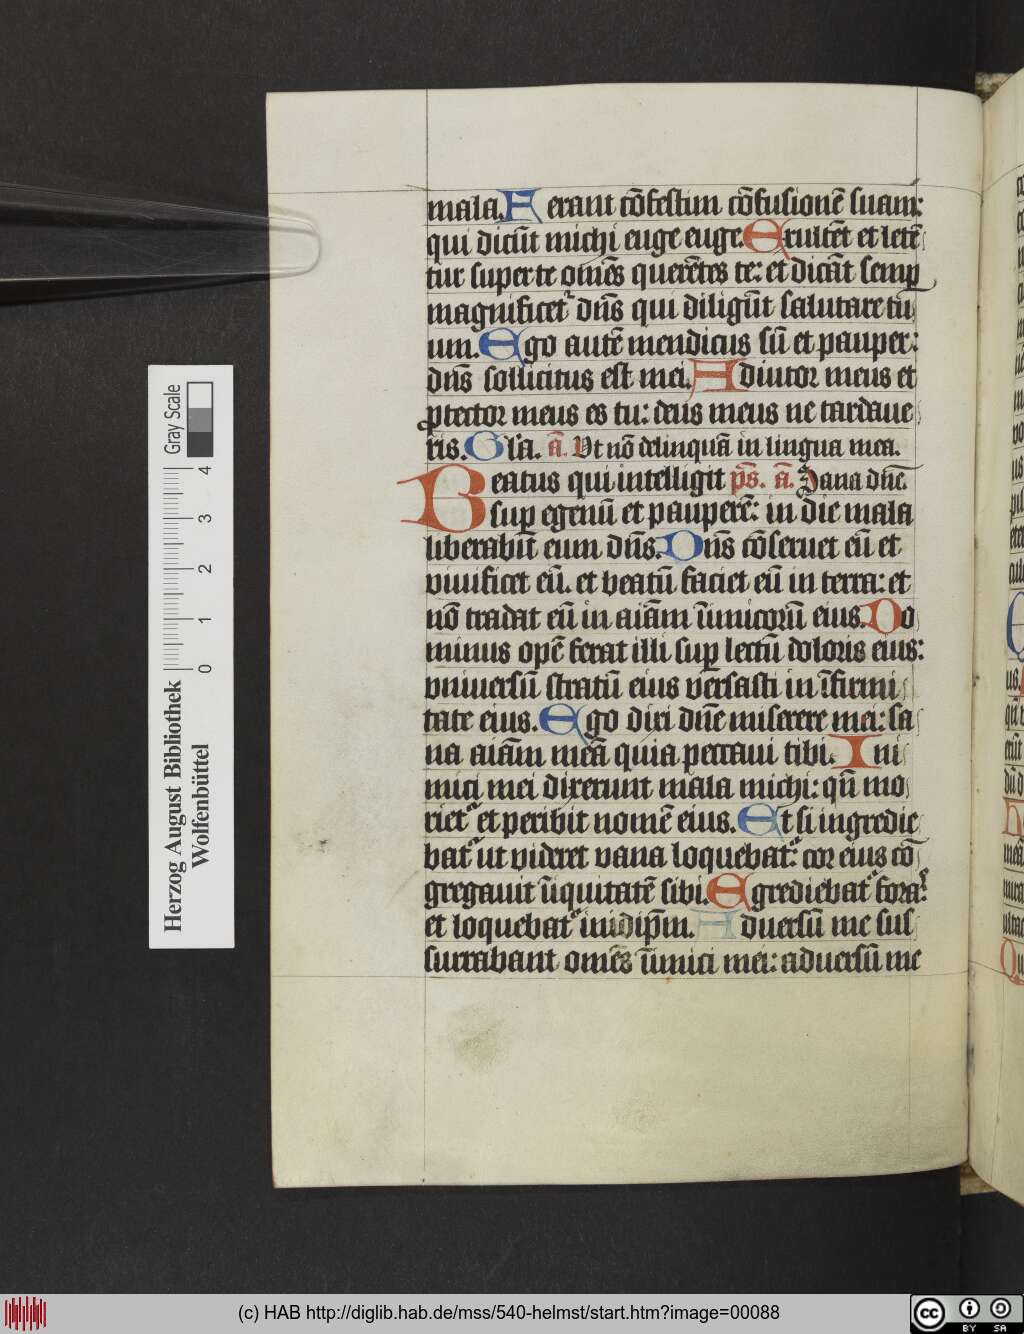 mala. Ferant cōfestim cōfusionē suam:
qui dicūt michi euge euge. Exultēt et letē
tur super te omēs querētes te: et dicāt semꝑ
magnificetᷣ dn̄s qui diligūt salutare tu
um. Ego autē mendicus sū et pauper:
dn̄s sollicitus est mei. Adiutor meus et
ꝓtector meus es tu: deus meus ne tardaue
ris. Gl̄a. a᷃. Ut nō delinquā in lingua mea.
Beatus qui intelligit ps̄. a᷃. Sana dn̄e.
suꝑ egenū et pauperē: in die mala
liberabit eum dn̄s. Dn̄s cōseruet eū et
viuificet eū. et beatū faciet eū in terra: et
nō tradat eū in aīam īimicorū eius. Do
minus opē ferat illi suꝑ lectū doloris eius:
vniuersū stratū eius versasti in īfirmi
tate eius. Ego dixi dn̄e miserere mei: sa
na aīam meā quia peccaui tibi. Ini
mici mei dixerunt mala michi: qn̄ mo
rietᷣ et peribit nomē eius. Et si ingredie
batᷣ ut videret vana loquebatᷣ: cor eius cō
gregauit īiquitatē sibi. Egrediebatᷣ foras
et loquebatᷣ in idip̄m. Aduersū me sus
surrabant omēs īimici mei: aduersū me
Herzog August Bibliothek
Wolfenbüttel
Gray Scale
0 1 2 3 4
(c) HAB http://diglib.hab.de/mss/540-helmst/start.htm?image=00088
cc BY SA